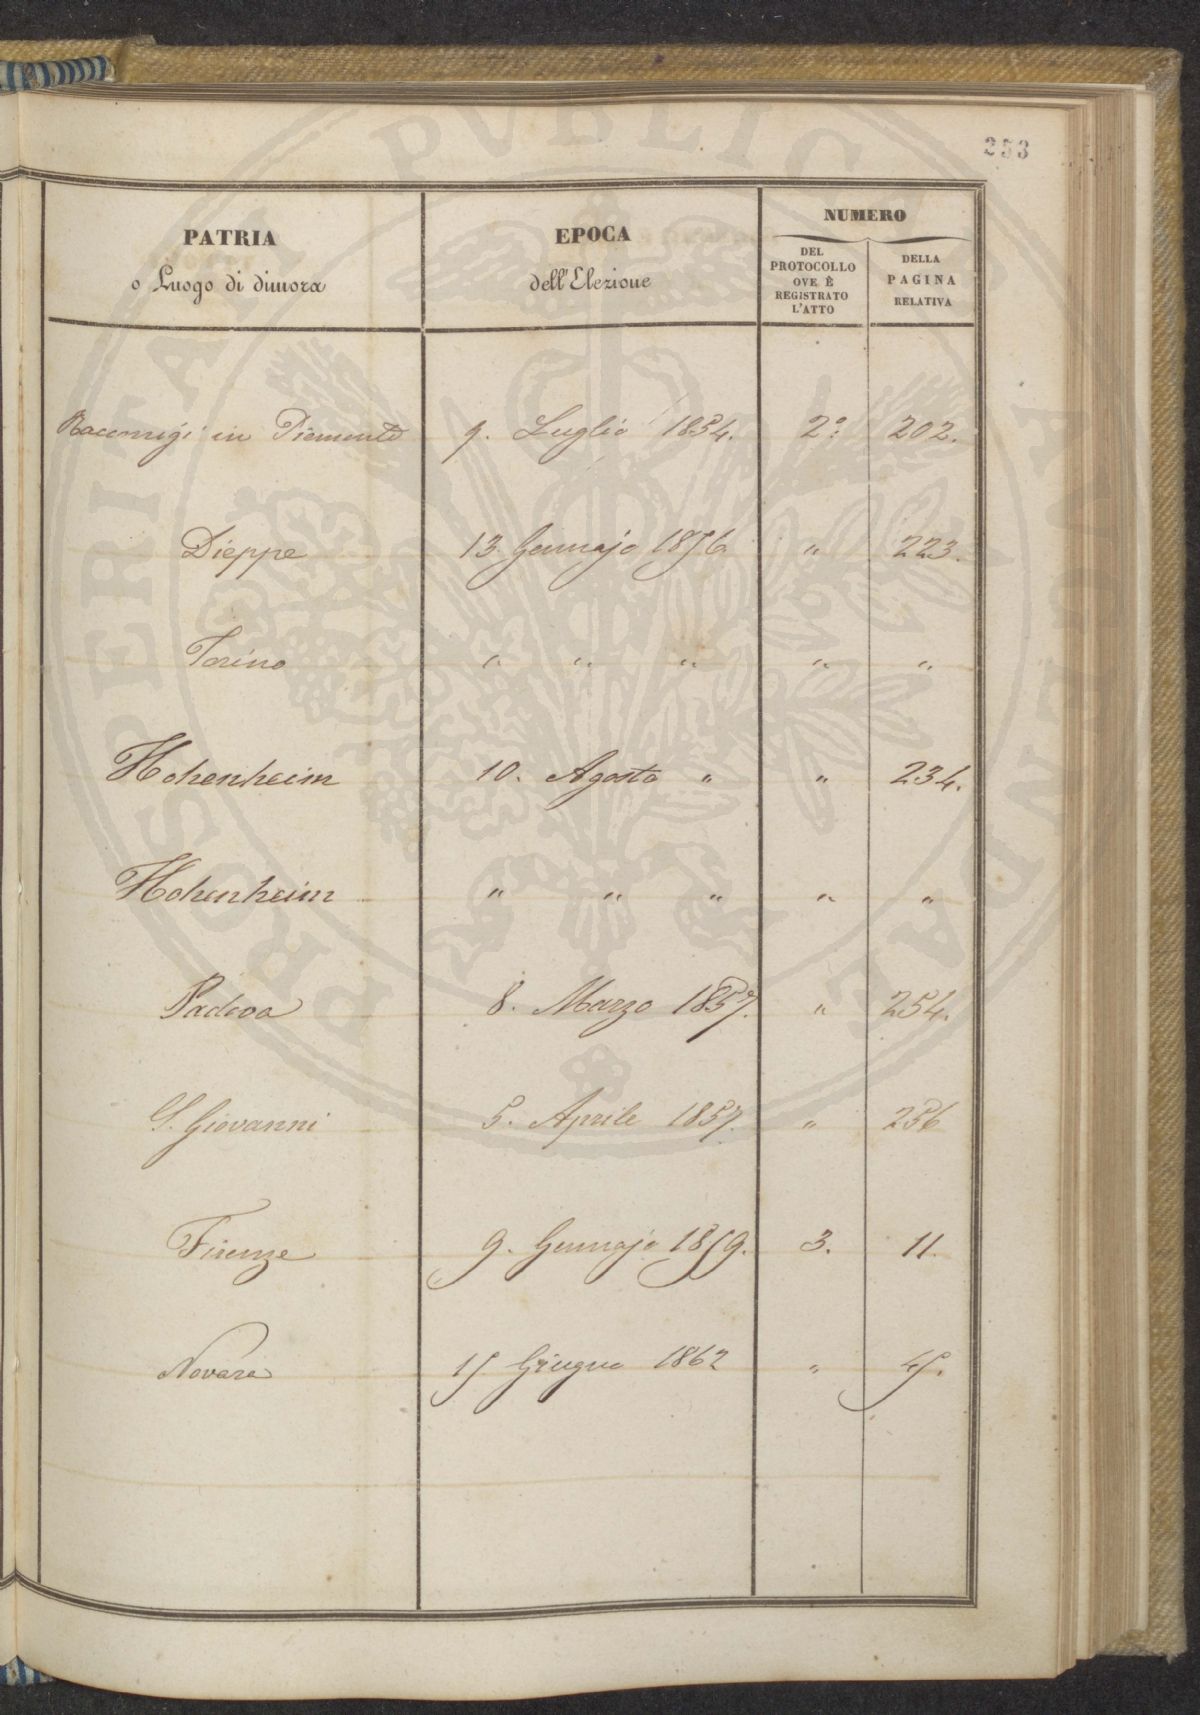 253
PATRIA
o Luogo di dimora
EPOCA
dell'Elezione
NUMERO
DEL
PROTOCOLLO
OVE È
REGISTRATO
L'ATTO
DELLA
PAGINA
RELATIVA
Racconigi in Piemonte 9. Luglio 1854. 2º 202.
Dieppe 13 Gennajo 1856 " 223.
Torino " " " " "
Hohenheim 10. Agosto " " 234.
Hohenheim " " " " "
Padova 8. Marzo 1857. " 254.
S. Giovanni 5. Aprile 1857. " 256
Firenze 9. Gennajo 1859. 3. 11.
Novara 15 Giugno 1862 " 45.
PROSPERITATI PVBLICAE AVGENDAE